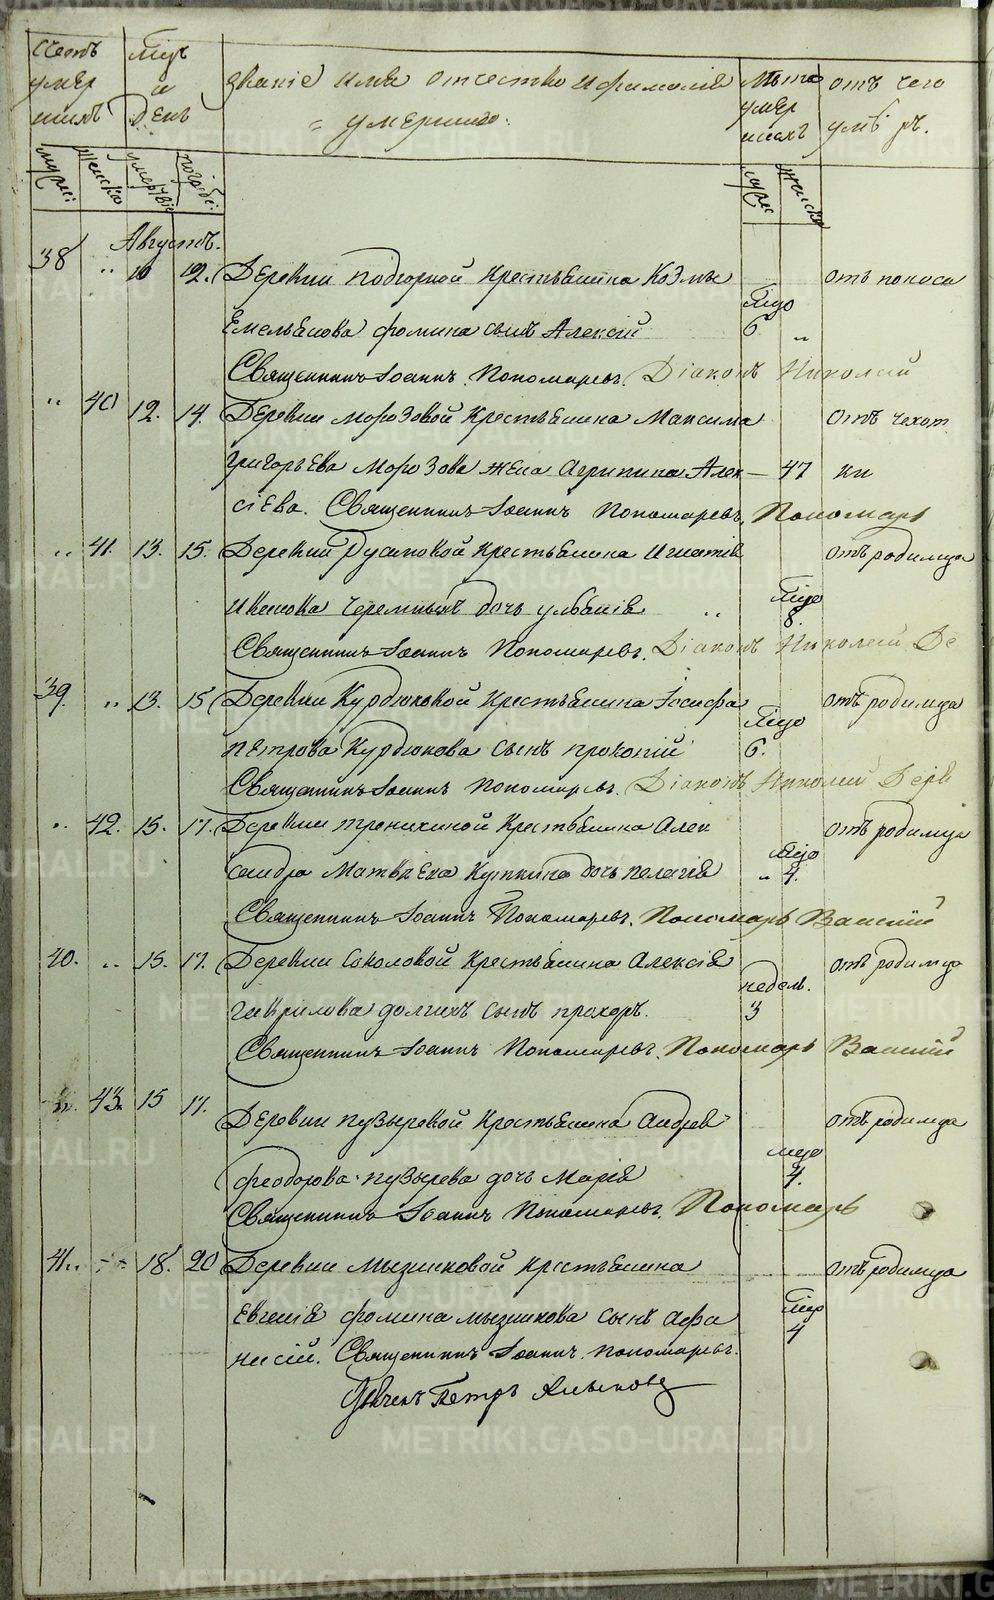 Счетъ умершихъ
Мѣсяцъ и День
Званіе имя отчество и фамилія
умершаго.
Лѣта умершихъ
отъ чего умеръ.
мужес:
женска
умертвіе
погребе:
мужес
женска
Августъ.
38 " 10 12. Деревни Подгорной Крестьянина Козмы отъ поноса
Емельянова Фомина сынъ Алексій 6 "
Священникъ Іоаннъ Пономаревъ. Діаконъ Николай
" 40 12. 14. Деревни Морозовой Крестьянина Максима Отъ чехот
Григорьева Морозова жена Агрипина Алек — 47 ки
сіева. Священникъ Іоаннъ Пономаревъ. Пономарь
" 41. 13. 15. Деревни Русаковой Крестьянина Игнатія отъ родимца
Иванова Черемныхъ дочь Уліанія " 8.
Священникъ Іоаннъ Пономаревъ. Діаконъ Николай Де
39. " 13. 15 Деревни Курдюковой Крестьянина Іосифа отъ родимца
Петрова Курдюкова сынъ Прокопій 6.
Священникъ Іоаннъ Пономаревъ. Діаконъ Николай Деря
" 42. 15. 17. Деревни Трошихиной Крестьянина Алек отъ родимца
сандра Матвѣева дочь Пелагія " 4.
Священникъ Іоаннъ Пономаревъ. Пономарь Василій
40. " 15. 17. Деревни Соколовой Крестьянина Алексія отъ родимца
недель.
Гаврилова Долгихъ сынъ Прохоръ. 3
Священникъ Іоаннъ Пономаревъ. Пономарь Василій
" 43. 15 17. Деревни Пузыревой Крестьянина Андрея отъ родимца
Феодорова Пузырева дочь Марія 4.
Священникъ Іоаннъ Пономаревъ. Пономарь
41. " 18. 20 Деревни Мызниковой Крестьянина отъ родимца
Евгенія Фомина Мызникова сынъ Афа 4
насій. Священникъ Іоаннъ Пономаревъ.
Дьячекъ Петръ
METRIKI.GASO-URAL.RU